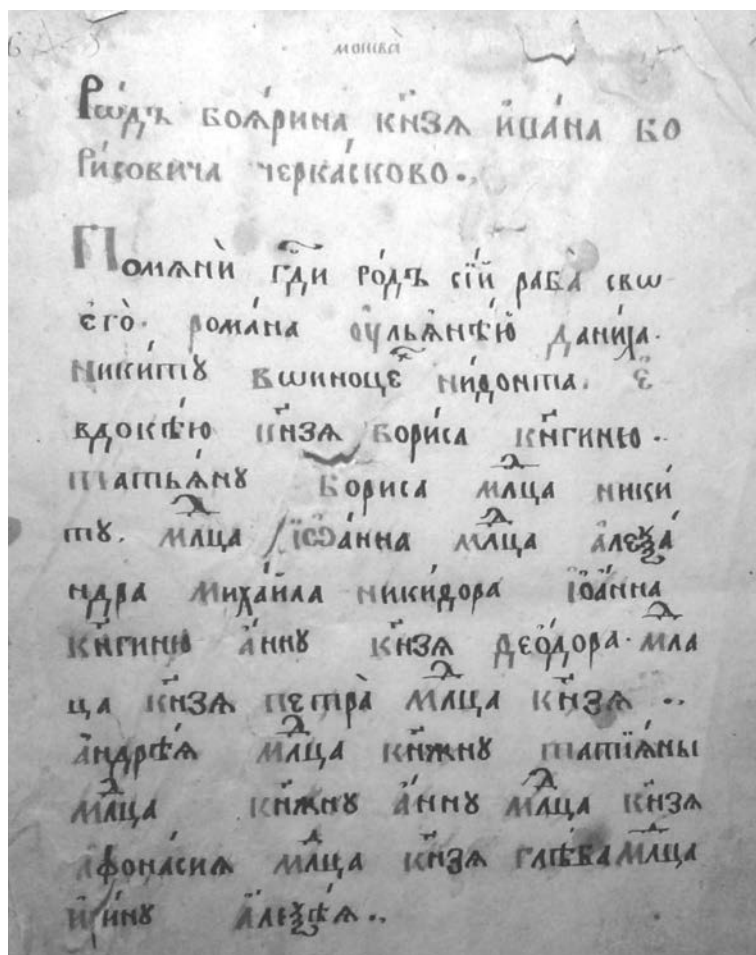 москва̀
Рѡ́дъ боѧ́рина кн҃зѧ и҆ва́на бо
ри́совича черка́сково ·.
Помѧнѝ гдⷭ҇и ро́дъ сі́й раба̀ свѡ
его̀ · рома́на ѹльѧ́нѣю даниі́ла ·
никиту ѻ
вдокѣю кн҃зѧ бори́са кн҃гиню ·
татьѧ́ну бориса млⷣца ники́
ту · млⷣца і҆ѡа́нна млⷣца а҆леѯа́
ндра миха́ила ники́фора і҆оа́нна
кн҃гиню а҆́нну кн҃зѧ феѻ́дора · млⷣа
ца кн҃зѧ петра̀ млⷣца кн҃зѧ ·.
а҆ндре́ѧ млⷣца кн҃жну татиѧ́ны
млⷣца кн҃жну а҆́нну млⷣца кн҃зѧ
афона́сиѧ млⷣца кн҃зѧ глѣ́ба млⷣца
а҆леѯѣ́ѧ ·.